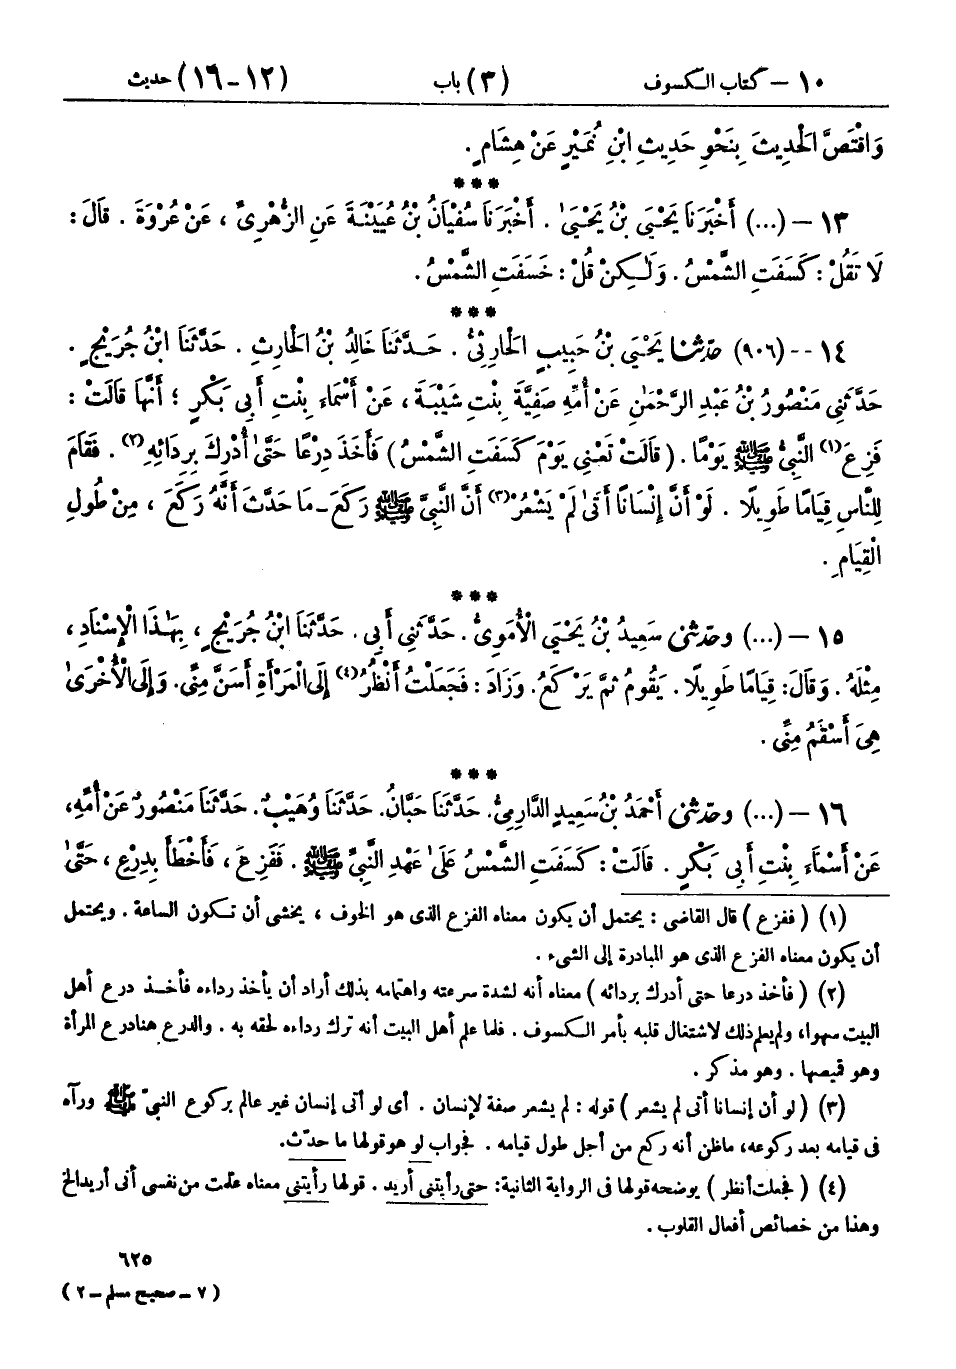 ١٠ – كتاب الكسوف (٣) باب (١٢-١٦) حديث
وَاقْتَصَّ الْحَدِيثَ بِنَحْوِ حَدِيثِ ابْنِ نُمَيْرٍ عَنْ هِشَامٍ .
***
١٣ – (...) أَخْبَرَنَا يَحْيَى بْنُ يَحْيَىٰ . أَخْبَرَنَا سُفْيَانُ بْنُ عُيَيْنَةَ عَنِ الزُّهْرِىِّ ، عَنْ عُرْوَةَ . قَالَ :
لَا تَقُلْ : كَسَفَتِ الشَّمْسُ . وَلَـٰكِنْ قُلْ : خَسَفَتِ الشَّمْسُ .
***
١٤ -- (٩٠٦) حدّثنا يَحْيَى بْنُ حَبِيبٍ الْحَارِثِىُّ . حَدَّثَنَا خَالِدُ بْنُ الْحَارِثِ . حَدَّثَنَا ابْنُ جُرَيْجٍ .
حَدَّثَنِى مَنْصُورُ بْنُ عَبْدِ الرَّحْمَـٰنِ عَنْ أُمِّهِ صَفِيَّةَ بِنْتِ شَيْبَةَ ، عَنْ أَسْمَاءَ بِنْتِ أَبِى بَكْرٍ ؛ أَنَّهَا قَالَتْ :
فَزِعَ(١) النَّبِىُّ ﷺ يَوْمًا . ( قَالَتْ تَعْنِى يَوْمَ كَسَفَتِ الشَّمْسُ ) فَأَخَذَ دِرْعًا حَتَّىٰ أُدْرِكَ بِرِدَائِهِ(٢) . فَقَامَ
لِلنَّاسِ قِيَامًا طَوِيلًا . لَوْ أَنَّ إِنْسَانًا أَتَىٰ لَمْ يَشْعُرْ(٣) أَنَّ النَّبِىَّ ﷺ رَكَعَ – مَا حَدَّثَ أَنَّهُ رَكَعَ ، مِنْ طُولِ
الْقِيَامِ .
***
١٥ – (...) وحدّثنى سَعِيدُ بْنُ يَحْيَى الْأُمَوِىُّ . حَدَّثَنِى أَبِى . حَدَّثَنَا ابْنُ جُرَيْجٍ ، بِهَـٰذَا الْإِسْنَادِ ،
مِثْلَهُ . وَقَالَ : قِيَامًا طَوِيلًا . يَقُومُ ثُمَّ يَرْكَعُ . وَزَادَ : فَجَعَلْتُ أَنْظُرُ(٤) إِلَى الْمَرْأَةِ أَسَنَّ مِنِّى . وَإِلَى الْأُخْرَىٰ
هِىَ أَسْقَمُ مِنِّى .
***
١٦ – (...) وحدّثنى أَحْمَدُ بْنُ سَعِيدٍ الدَّارِمِىُّ . حَدَّثَنَا حَبَّانُ . حَدَّثَنَا وُهَيْبٌ . حَدَّثَنَا مَنْصُورٌ عَنْ أُمِّهِ ،
عَنْ أَسْمَاءَ بِنْتِ أَبِى بَكْرٍ . قَالَتْ : كَسَفَتِ الشَّمْسُ عَلَىٰ عَهْدِ النَّبِىِّ ﷺ . فَفَزِعَ ، فَأَخْطَأَ بِدِرْعٍ ، حَتَّىٰ
(١) ( ففزع ) قال القاضى : يحتمل أن يكون معناه الفزع الذى هو الخوف ، يخشى أن تكون الساعة . ويحتمل
أن يكون معناه الفزع الذى هو المبادرة إلى الشىء .
(٢) ( فأخذ درعا حتى أدرك بردائه ) معناه أنه لشدة سرعته واهتمامه بذلك أراد أن يأخذ رداءه فأخذ درع أهل
البيت سهوا، ولم يعلم ذلك لاشتغال قلبه بأمر الكسوف . فلما علم أهل البيت أنه ترك رداءه لحقه به . والدرع هنا درع المرأة
وهو قميصها . وهو مذكر .
(٣) ( لو أن إنسانا أتى لم يشعر ) قوله : لم يشعر صفة لإنسان . أى لو أتى إنسان غير عالم بركوع النبىّ ﷺ ورآه
فى قيامه بعد ركوعه، ماظن أنه ركع من أجل طول قيامه . فجواب لو هو قولها ما حدّث.
(٤) ( فجعلت أنظر ) يوضحه قولها فى الرواية الثانية: حتى رأيتنى أريد . قولها رأيتنى معناه علمت من نفسى أنى أريد الخ
وهذا من خصائص أفعال القلوب .
٦٢٥
( ٧ – صحيح مسلم – ٢ )